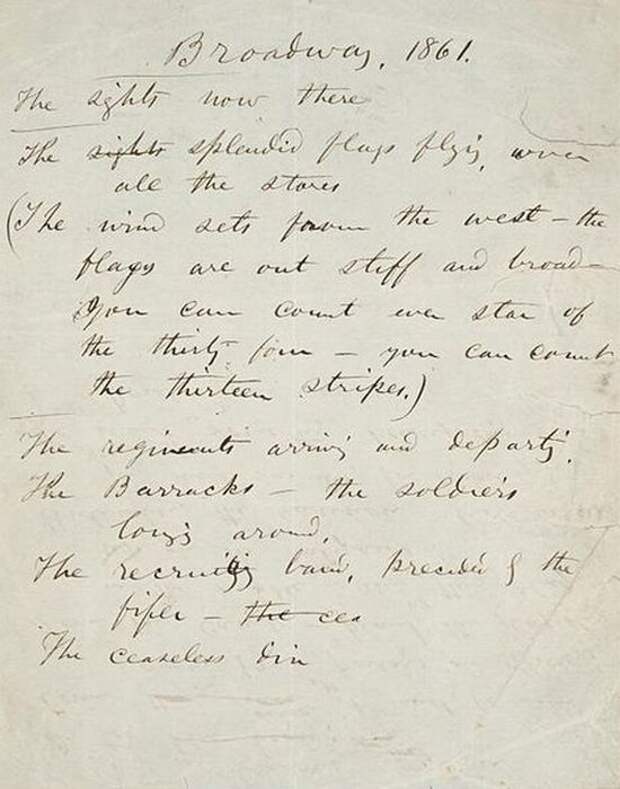 Broadway, 1861.
The sights now there
The sights splendid flags flying over
all the stores
(The wind sets from the west – the
flags are out stiff and broad –
you can count every star of
the thirty-four – you can count
the thirteen stripes.)
The regiments arriving and departing,
The Barracks – the soldiers
lounging around,
The recruiting band, preceded by the
fifer – the cea
The ceaseless din